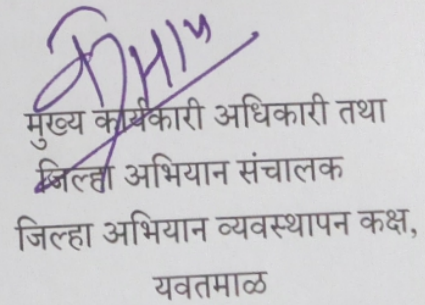 मुख्य कार्यकारी अधिकारी तथा
जिल्हा अभियान संचालक
जिल्हा अभियान व्यवस्थापन कक्ष,
यवतमाळ